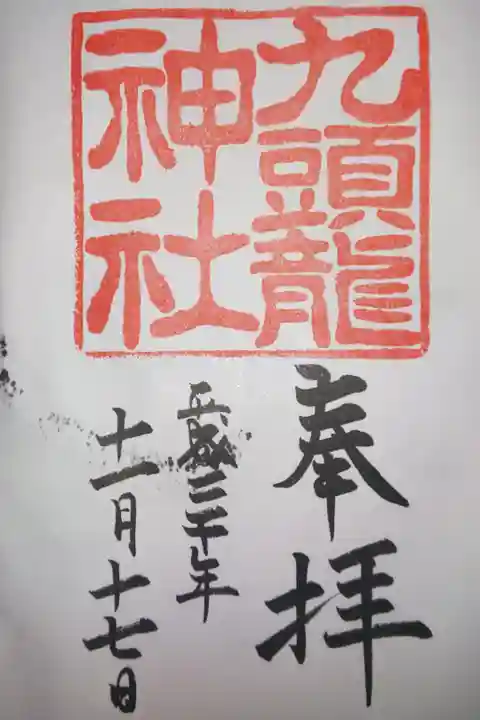 九頭龍
神社
奉拝
平成三十年
十一月十七日